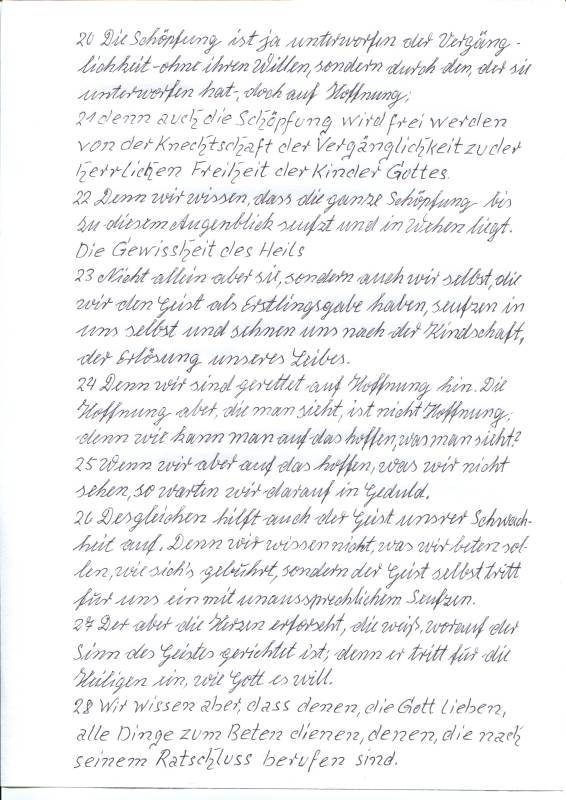 20 Die Schöpfung ist ja unterworfen der Vergäng-
lichkeit – ohne ihren Willen, sondern durch den, der sie
unterworfen hat –, doch auf Hoffnung;
21 denn auch die Schöpfung wird frei werden
von der Knechtschaft der Vergänglichkeit zu der
herrlichen Freiheit der Kinder Gottes.
22 Denn wir wissen, dass die ganze Schöpfung bis
zu diesem Augenblick seufzt und in Wehen liegt.
Die Gewissheit des Heils
23 Nicht allein aber sie, sondern auch wir selbst, die
wir den Geist als Erstlingsgabe haben, seufzen in
uns selbst und sehnen uns nach der Kindschaft,
der Erlösung unseres Leibes.
24 Denn wir sind gerettet auf Hoffnung hin. Die
Hoffnung aber, die man sieht, ist nicht Hoffnung;
denn wie kann man auf das hoffen, was man sieht?
25 Wenn wir aber auf das hoffen, was wir nicht
sehen, so warten wir darauf in Geduld.
26 Desgleichen hilft auch der Geist unsrer Schwach-
heit auf. Denn wir wissen nicht, was wir beten sol-
len, wie sich's gebührt, sondern der Geist selbst tritt
für uns ein mit unaussprechlichem Seufzen.
27 Der aber die Herzen erforscht, die weiß, worauf der
Sinn des Geistes gerichtet ist; denn er tritt für die
Heiligen ein, wie Gott es will.
28 Wir wissen aber, dass denen, die Gott lieben,
alle Dinge zum Besten dienen, denen, die nach
seinem Ratschluss berufen sind.